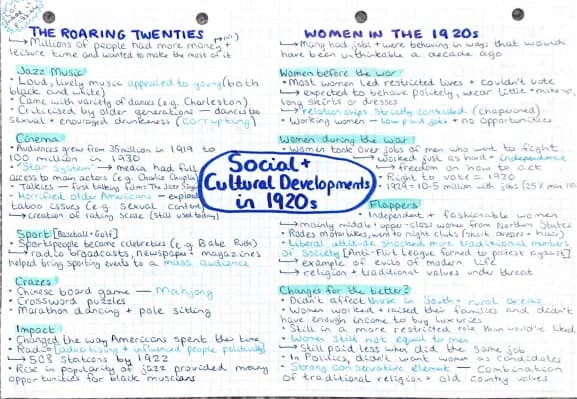 THE ROARING TWENTIES
→ Millions of people had more money +
leisure time and wanted to make the most of it
Jazz Music
• Loud, lively music appealed to young (both
black and white)
• Came with variety of dances (e.g. Charleston)
• Criticised by older generations — dances too
sexual + encouraged drunkeness (corrupting)
Cinema
• Audiences grew from 35 million in 1919 to
100 million in 1930
• "Star System" → media had full
access to main actors (e.g. Charlie Chaplin)
• Talkies — first talking film: The Jazz Singer
• Horrified older Americans —
taboo issues (e.g. Sexual content)
→ creation of rating scale (still used today)
Sport [Baseball + Golf]
• Sportspeople became celebreties (e.g Babe Ruth)
→ radio broadcasts, newspaper + magazines
helped bring sporting events to a mass audience
Crazes
• Chinese board game — Mahjong
• Crossword puzzles
• Marathon dancing + pole sitting
Impact
• Changed the way Americans spent their time
• Radio [advertising + influenced people politically]
→ 508 stations by 1922
• Rise in popularity of jazz provided many
opportunities for black muscians
Social +
Cultural Developments
in 1920s
WOMEN IN THE 1920s
→ Many had jobs + were behaving in ways that would
have been unthinkable a decade ago
Women before the war
• Most women led restricted lives + couldn't vote
→ expected to behave politely, wear little makeup,
long skirts or dresses
→ relationships strictly controlled (chaperoned)
• Working women — low paid jobs + no opportunities
Women during the war
• Women took over jobs of men who went to fight
→ worked just as hard + independence
+ freedom on how to act
• Right to vote in 1920
• 1929 = 10.5 million with jobs (25% more
Flappers
• Independent + fashionable women
→ mainly middle + upper-class women from Northern States
• Rode motorbikes, went to night clubs (short dresses + hair)
• Liberal attitude shocked more traditional members
of society [Anti-Flirt League formed to protest against]
→ example of evils of modern life
→ religion + traditional values under threat
Changes for the better?
• Didn't affect those in South + rural areas
• Women worked + raised their families and didn't
have enough income to buy luxuries
• Still in a more restricted role than would've liked
• Women still not equal to men
→ Still paid less when did the same job
• In Politics, didn't want women as candidates
• Strong conservative element — Combination
of traditional religion + old country values